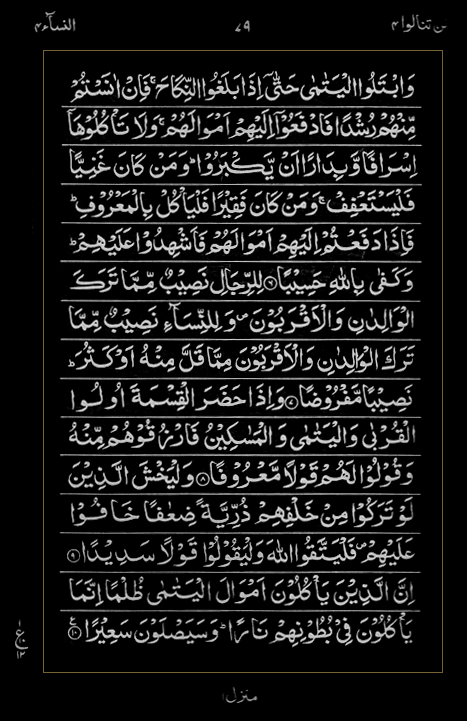 لن تنالوا ٤ ٧٩ النسآء ٤
وَابْتَلُوا الْيَتٰمٰى حَتّٰٓى اِذَا بَلَغُوا النِّكَاحَ ۚ فَاِنْ اٰنَسْتُمْ
مِّنْهُمْ رُشْدًا فَادْفَعُوْٓا اِلَيْهِمْ اَمْوَالَهُمْ ۚ وَلَا تَاْكُلُوْهَآ
اِسْرَافًا وَّبِدَارًا اَنْ يَّكْبَرُوْا ؕ وَمَنْ كَانَ غَنِيًّا
فَلْيَسْتَعْفِفْ ۚ وَمَنْ كَانَ فَقِيْرًا فَلْيَاْكُلْ بِالْمَعْرُوْفِ ؕ
فَاِذَا دَفَعْتُمْ اِلَيْهِمْ اَمْوَالَهُمْ فَاَشْهِدُوْا عَلَيْهِمْ ؕ
وَكَفٰى بِاللّٰهِ حَسِيْبًا ۝٦ لِلرِّجَالِ نَصِيْبٌ مِّمَّا تَرَكَ
الْوَالِدٰنِ وَالْاَقْرَبُوْنَ ۪ وَلِلنِّسَآءِ نَصِيْبٌ مِّمَّا
تَرَكَ الْوَالِدٰنِ وَالْاَقْرَبُوْنَ مِمَّا قَلَّ مِنْهُ اَوْ كَثُرَ ؕ
نَصِيْبًا مَّفْرُوْضًا ۝٧ وَاِذَا حَضَرَ الْقِسْمَةَ اُولُوا
الْقُرْبٰى وَالْيَتٰمٰى وَالْمَسٰكِيْنُ فَارْزُقُوْهُمْ مِّنْهُ
وَقُوْلُوْا لَهُمْ قَوْلًا مَّعْرُوْفًا ۝٨ وَلْيَخْشَ الَّذِيْنَ
لَوْ تَرَكُوْا مِنْ خَلْفِهِمْ ذُرِّيَّةً ضِعٰفًا خَافُوْا
عَلَيْهِمْ ۪ فَلْيَتَّقُوا اللّٰهَ وَلْيَقُوْلُوْا قَوْلًا سَدِيْدًا ۝٩
اِنَّ الَّذِيْنَ يَاْكُلُوْنَ اَمْوَالَ الْيَتٰمٰى ظُلْمًا اِنَّمَا
يَاْكُلُوْنَ فِيْ بُطُوْنِهِمْ نَارًا ؕ وَسَيَصْلَوْنَ سَعِيْرًا ۝١٠
ع ١٢
منزل ١